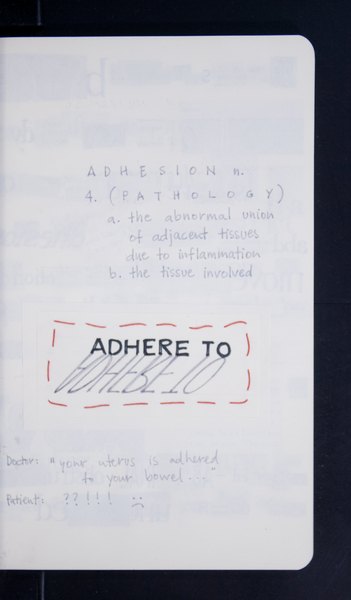 ADHESION n.
4. (PATHOLOGY)
a. the abnormal union
of adjacent tissues
due to inflammation
b. the tissue involved
ADHERE TO
ADHERE TO
Doctor: "your uterus is adhered
to your bowel..."
Patient: ??!!! :(